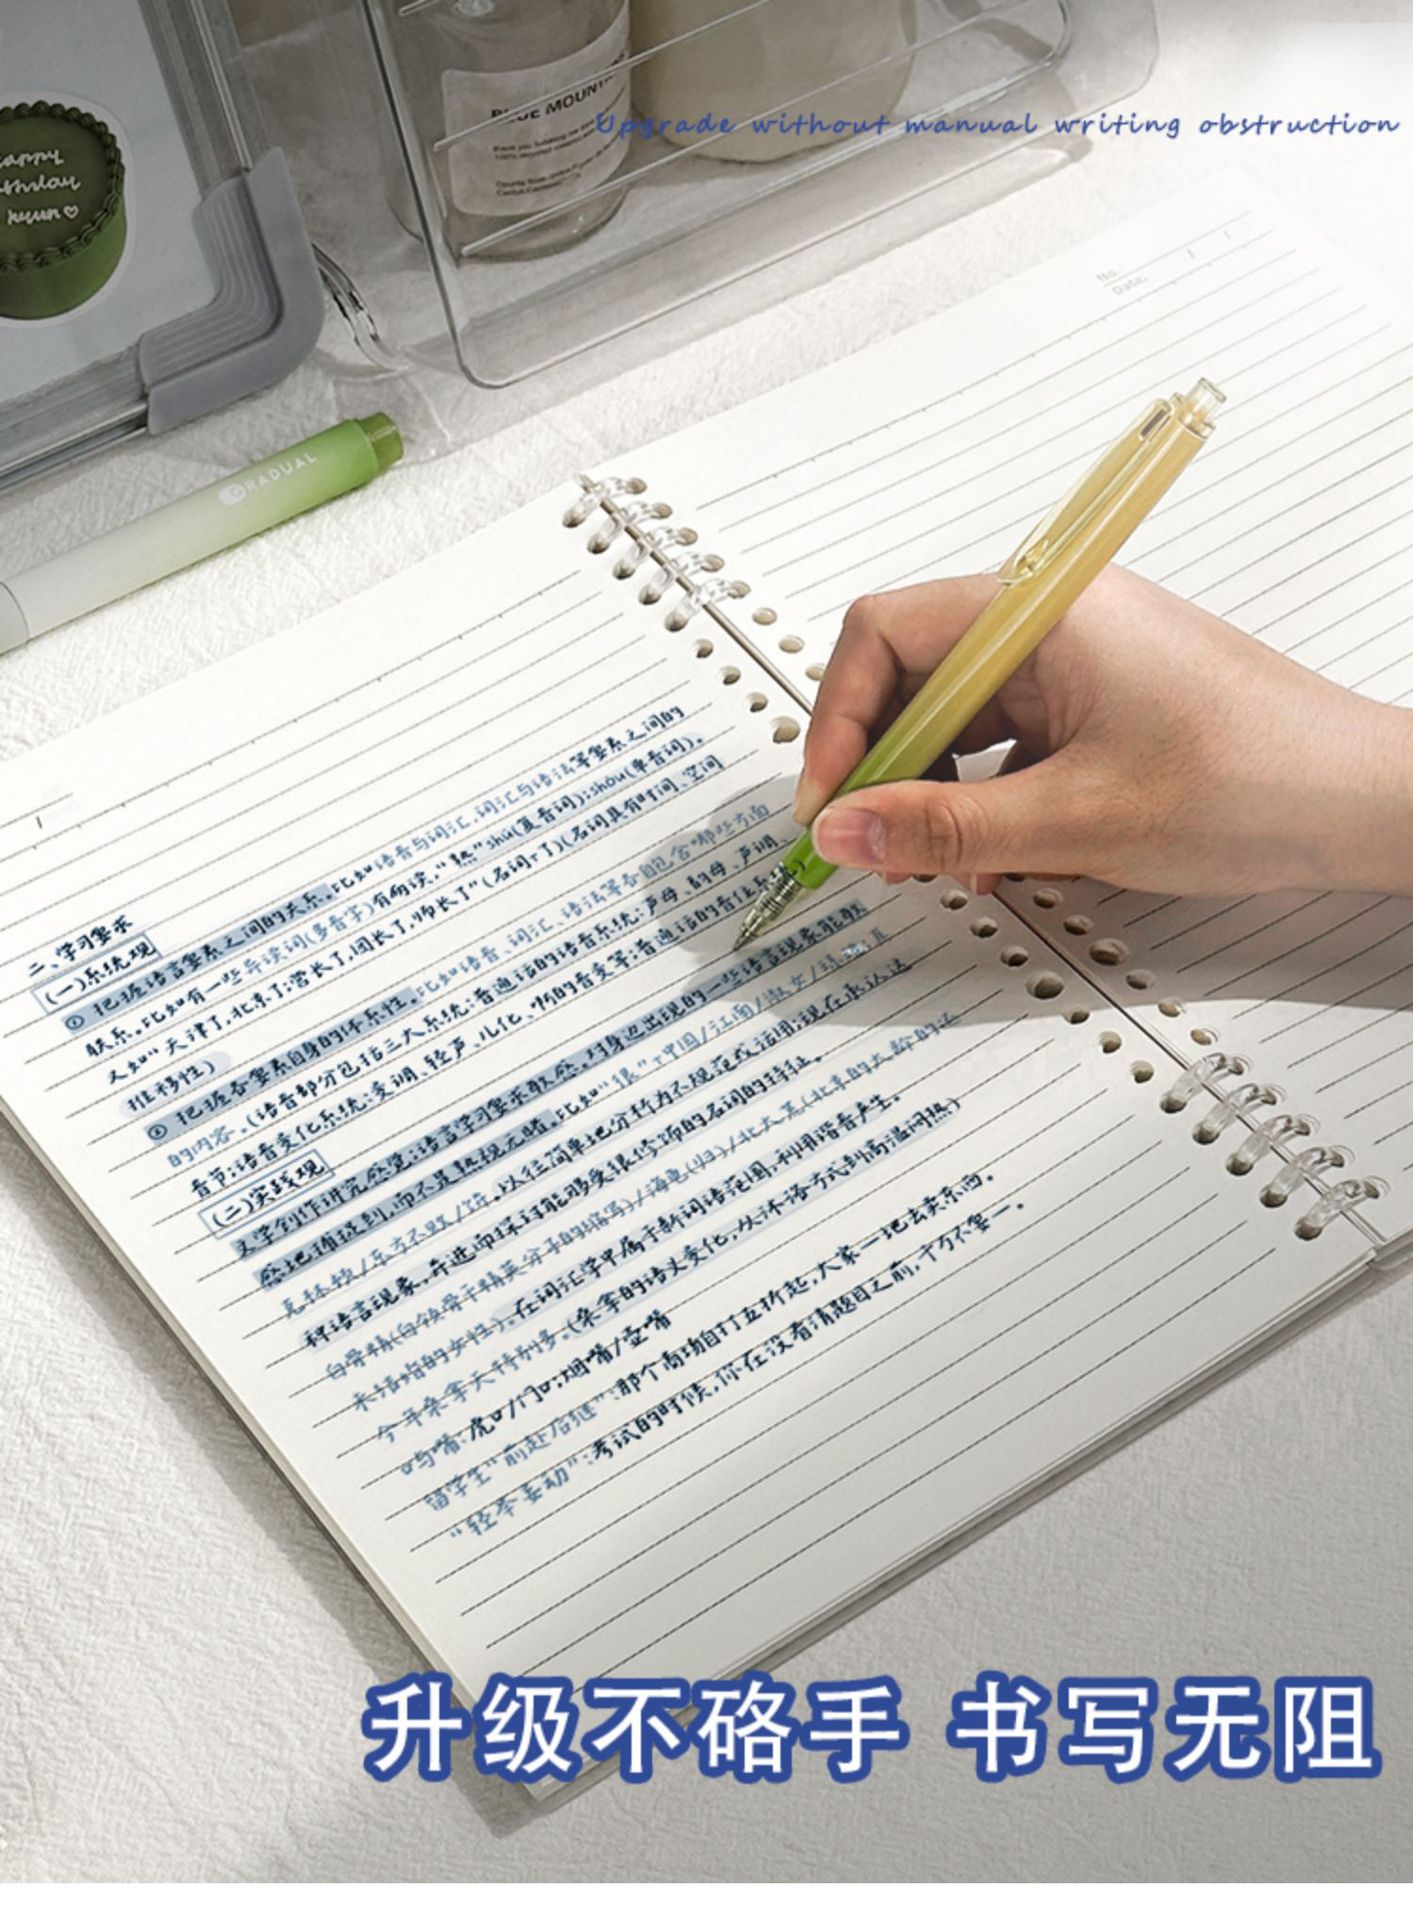 Happy
kyun♡
BLUE MOUNTAIN
Upgrade without manual writing obstruction
No.
Date.
GRADUAL
二、学习要求
(一)系统观
① 把握语言要素之间的关系。比如语音与词汇、词汇与语法等要素之间的
联系。比如有一些异读词(多音字)有两读,“熟”shú(复音词);shóu(单音词)。
又如“天津了,北京了;营长了,团长了,师长了”(名词+了)(名词具有时间、空间
推移性)
② 把握各要素自身的体系性。比如语音、词汇、语法等各自包含哪些方面
的内容。(语音部分包括三大系统:普通话的语音系统:声母、韵母、声调、
音节;语音变化系统:变调、轻声、儿化、啊的音变等;普通话的
(二)实践观
文学创作讲究感觉;语言学习要求敏感。对身边出现的一些语言现象能敏
感地捕捉到,而不是熟视无睹。比如“很”+中国/江南/淑女
克林顿/东方不败/
种语言现象,并进而探讨能够受很修饰的名词的特征。
白骨精(白领骨干精英分子的缩写)/海龟(归)/北大荒(北京的大龄的还
未结婚的女性)。在词汇学中属于新词语范围,利用谐音产生。
今年桑拿天特别多。(桑拿的语义变化,从沐浴方式到高温闷热)
口与嘴:虎口/门口;烟嘴/壶嘴
留学生“前赴后继”:那个商场自打五折起,大家一地去卖东西。
“轻举妄动”:考试的时候,你在没看清题目之前,千万不要一。
升级不硌手 书写无阻